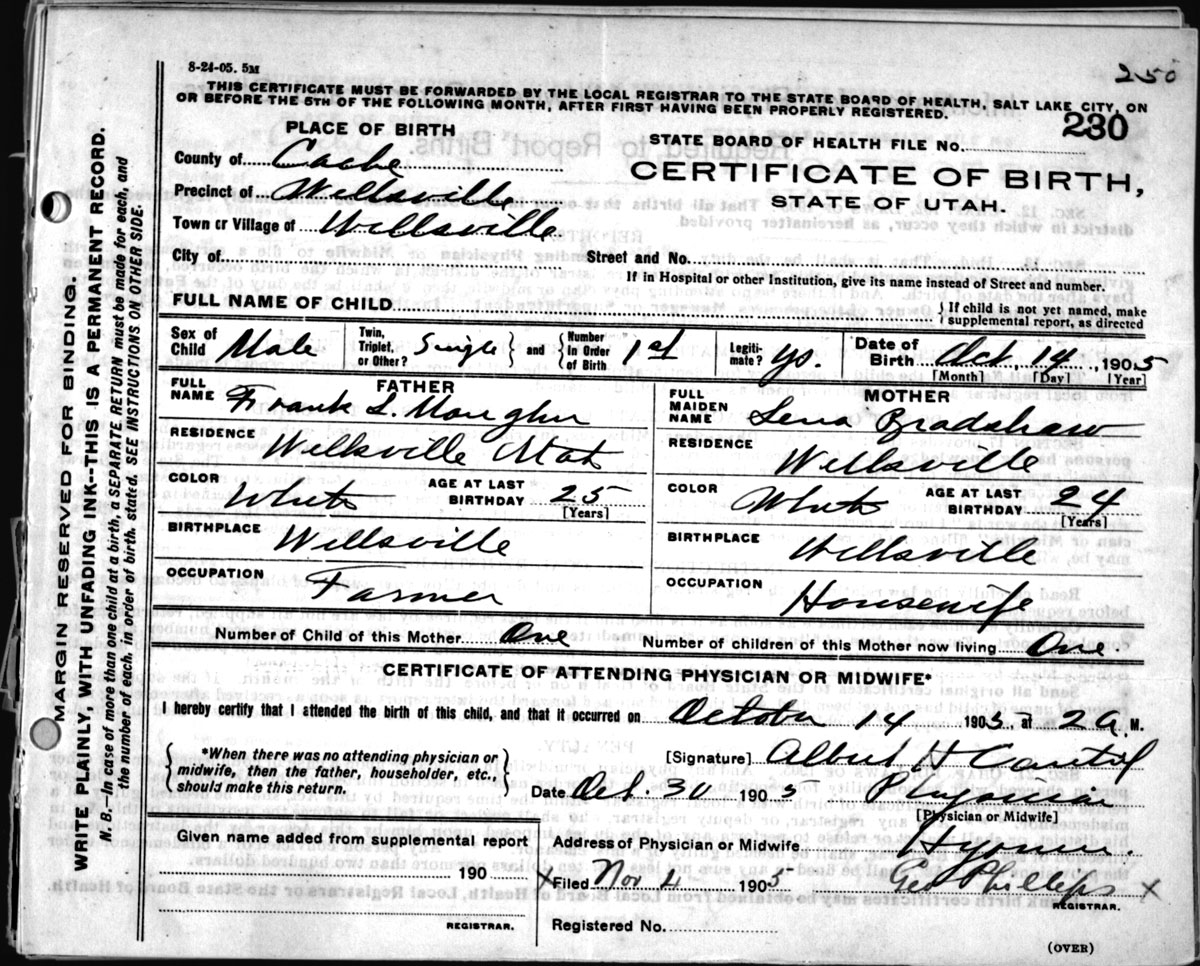 8-24-05. 5M
250
THIS CERTIFICATE MUST BE FORWARDED BY THE LOCAL REGISTRAR TO THE STATE BOARD OF HEALTH, SALT LAKE CITY, ON
OR BEFORE THE 5TH OF THE FOLLOWING MONTH, AFTER FIRST HAVING BEEN PROPERLY REGISTERED.
230
PLACE OF BIRTH
STATE BOARD OF HEALTH FILE No.
County of Cache
CERTIFICATE OF BIRTH,
STATE OF UTAH.
Precinct of Wellsville
Town or Village of Wellsville
City of
Street and No.
If in Hospital or other Institution, give its name instead of Street and number.
FULL NAME OF CHILD
{ If child is not yet named, make
supplemental report, as directed
Sex of Child Male
Twin, Triplet, or Other? Single } and { Number In Order of Birth 1st
Legiti- mate? ys.
Date of Birth Oct, 14, 1905
[Month] [Day] [Year]
FATHER
FULL NAME Frank L. Maughn
RESIDENCE Wellsville Utah
COLOR White AGE AT LAST BIRTHDAY 25
[Years]
BIRTHPLACE Wellsville
OCCUPATION Farmer
MOTHER
FULL MAIDEN NAME Lena Bradshaw
RESIDENCE Wellsville
COLOR White AGE AT LAST BIRTHDAY 24
[Years]
BIRTHPLACE Wellsville
OCCUPATION Housewife
Number of Child of this Mother One
Number of children of this Mother now living One
CERTIFICATE OF ATTENDING PHYSICIAN OR MIDWIFE*
I hereby certify that I attended the birth of this child, and that it occurred on October 14 1905 at 2 a. M.
{ *When there was no attending physician or
midwife, then the father, householder, etc.,
should make this return. }
[Signature] Albert H
Date Oct. 30 1905 Physician
[Physician or Midwife]
Given name added from supplemental report
190
REGISTRAR.
Address of Physician or Midwife Hyrum.
x Filed Nov 4 1905 Geo Phillips x
REGISTRAR.
Registered No.
(OVER)
MARGIN RESERVED FOR BINDING.
WRITE PLAINLY, WITH UNFADING INK--THIS IS A PERMANENT RECORD.
N. B.—In case of more than one child at a birth, a SEPARATE RETURN must be made for each, and
the number of each, in order of birth, stated. SEE INSTRUCTIONS ON OTHER SIDE.